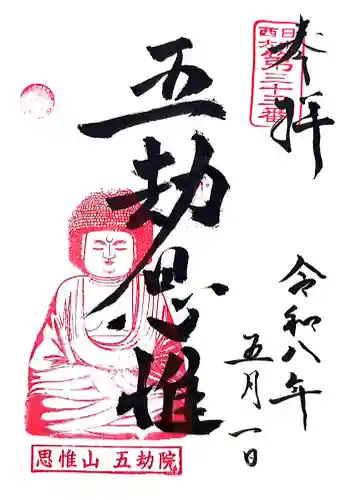 奉拝
第三十三番
五劫思惟
令和八年
五月一日
思惟山 五劫院